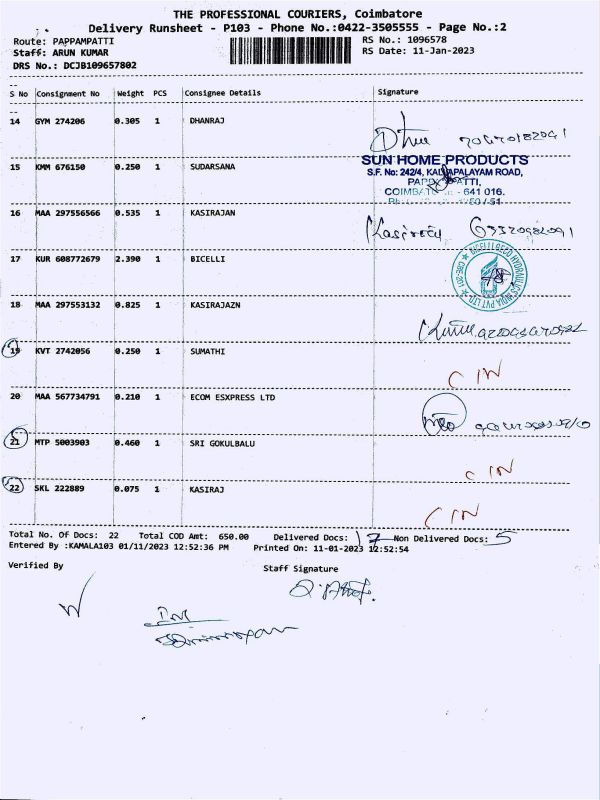 THE PROFESSIONAL COURIERS, Coimbatore
Delivery Runsheet - P103 - Phone No.:0422-3505555 - Page No.:2
Route: PAPPAMPATTI RS No.: 1096578
Staff: ARUN KUMAR RS Date: 11-Jan-2023
DRS No.: DCJB109657802
S No Consignment No Weight PCS Consignee Details Signature
14 GYM 274206 0.305 1 DHANRAJ
15 KMM 676150 0.250 1 SUDARSANA
SUN HOME PRODUCTS
S.F. No: 242/4, KALIAPALAYAM ROAD,
COIMBATORE - 641 016.
16 MAA 297556566 0.535 1 KASIRAJAN
17 KUR 608772679 2.390 1 BICELLI
18 MAA 297553132 0.825 1 KASIRAJAZN
19 KVT 2742056 0.250 1 SUMATHI CIN
20 MAA 567734791 0.210 1 ECOM ESXPRESS LTD
21 MTP 5003903 0.460 1 SRI GOKULBALU CIN
22 SKL 222889 0.075 1 KASIRAJ CIN
Total No. Of Docs: 22 Total COD Amt: 650.00 Delivered Docs: 17 Non Delivered Docs: 5
Entered By :KAMALA103 01/11/2023 12:52:36 PM Printed On: 11-01-2023 12:52:54
Verified By Staff Signature